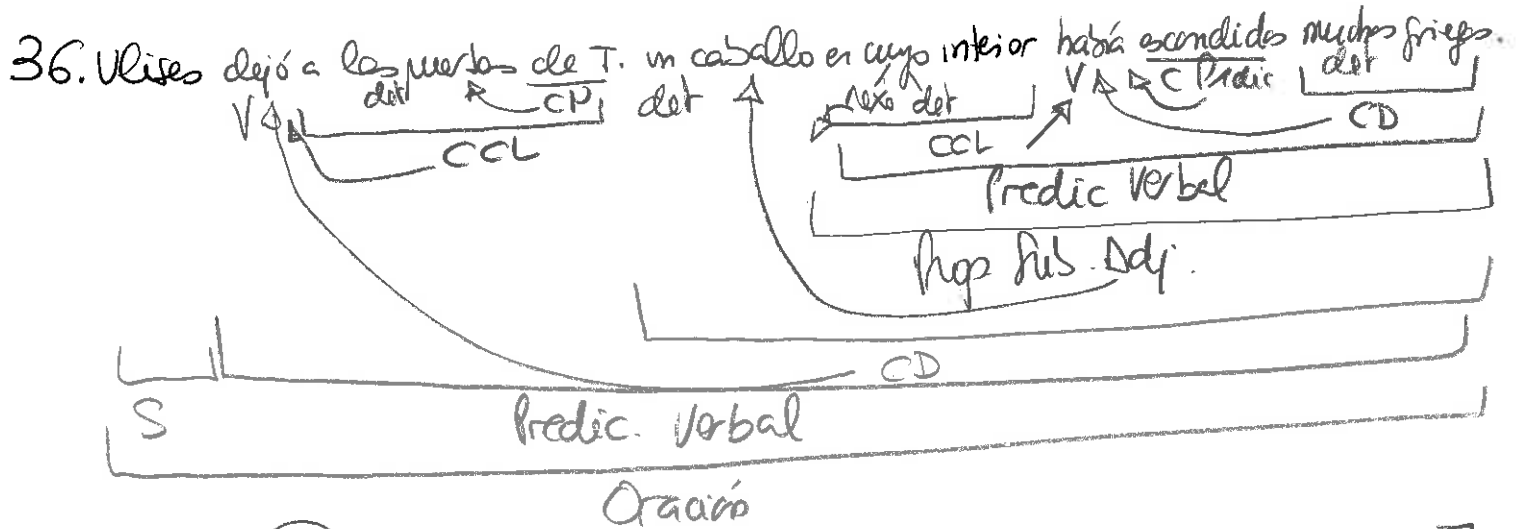 36. Ulises dejó a las puertas de T. un caballo en cuyo interior había escondidos muchos griegos.
det CP det nexo det V C Predic det
V CCL CCL CD
Predic Verbal
Prop Sub. Adj.
CD
S Predic. Verbal
Oración